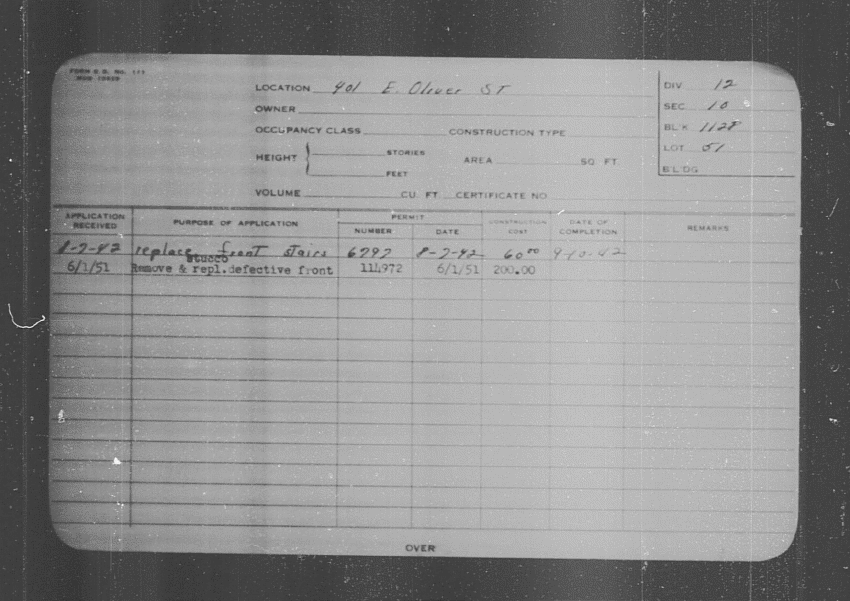 FORM
LOCATION 401 E. Oliver ST
OWNER
OCCUPANCY CLASS CONSTRUCTION TYPE
HEIGHT STORIES AREA SQ FT
FEET
VOLUME CU. FT CERTIFICATE NO
DIV 12
SEC 10
BL'K 1128
LOT 51
B'LDG
APPLICATION RECEIVED PURPOSE OF APPLICATION PERMIT NUMBER DATE CONSTRUCTION COST DATE OF COMPLETION REMARKS
8-7-42 replace front stairs 6792 8-7-42 60 00 9-10-42
stucco
6/1/51 Remove & repl.defective front 114972 6/1/51 200.00
OVER